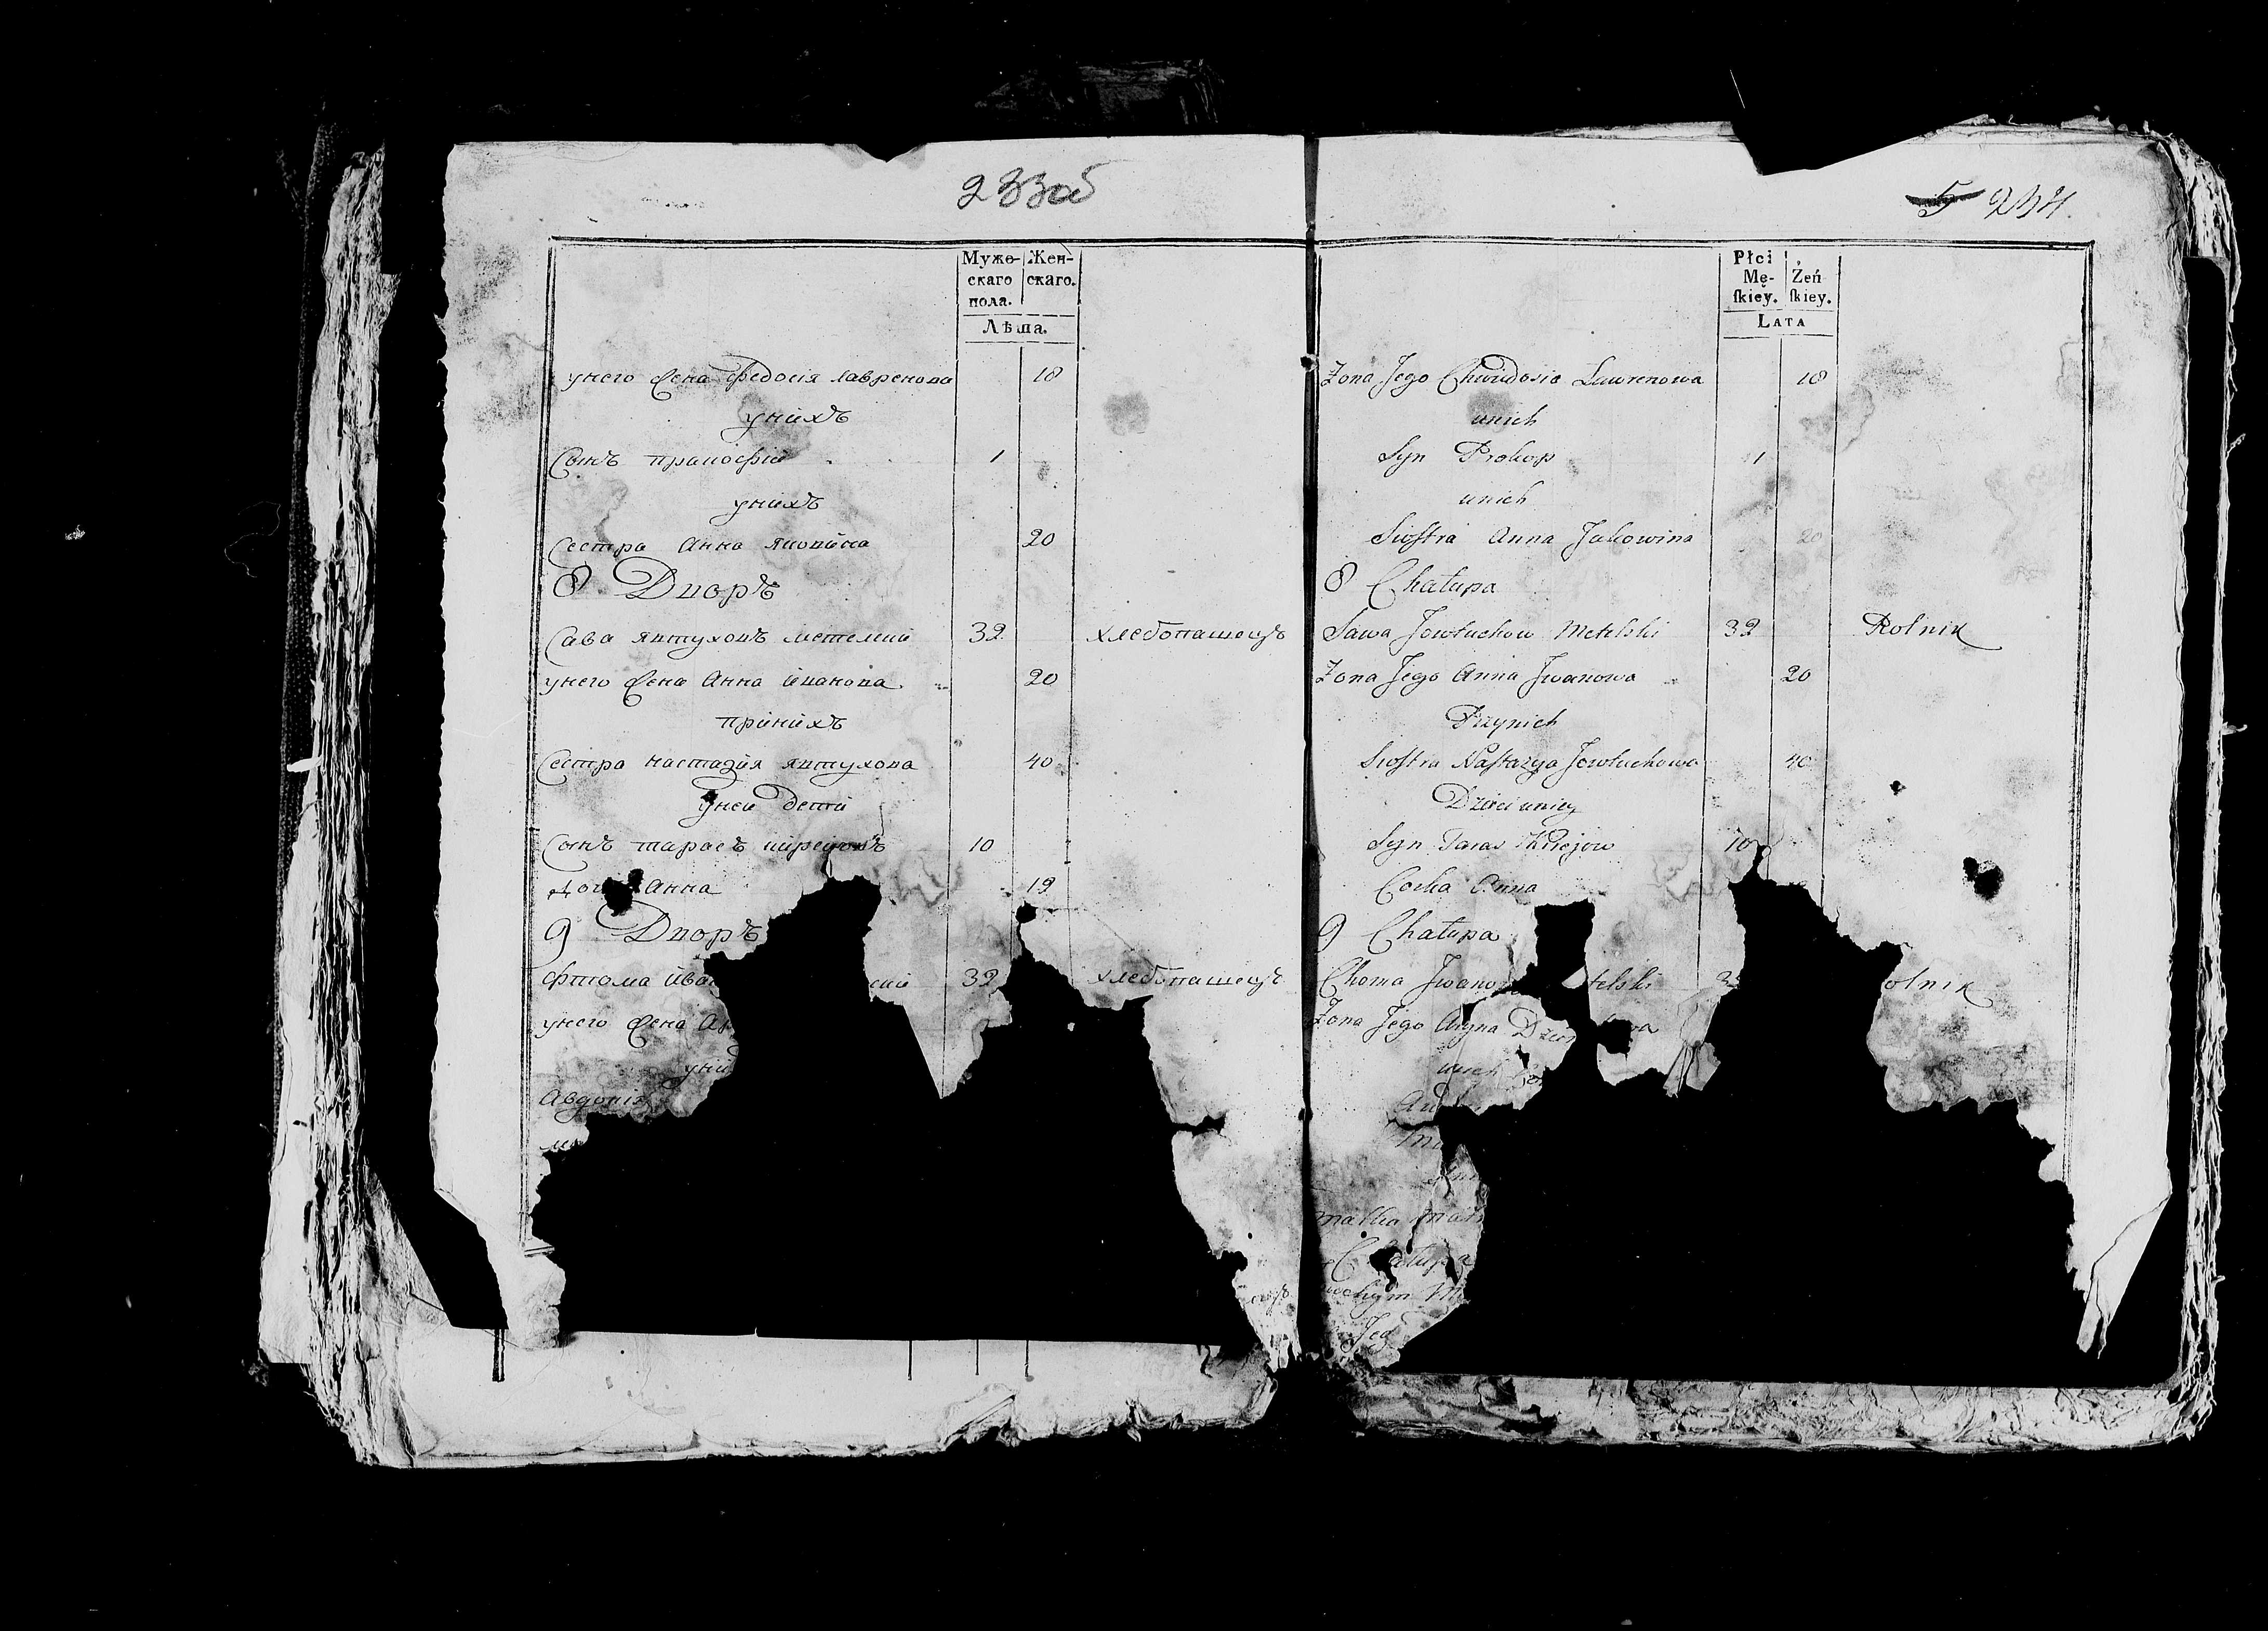 233об
Муже-
скаго
пола.
Жен-
скаго.
Лѣта.
унего жена федосія лавренова 18
унихъ
Сынъ пракофій 1
унихъ
Сестра Анна яковина 20
8 Дворъ
Сава явтуховъ метелкий 32 хлебопашецъ
унего жена Анна иванова 20
принихъ
Сестра настазия явтухова 40
уней дети
Сынъ тарасъ 10
Анна 19
9 Дворъ
фтома 32 хлебопашецъ
унего жена
уни
Авдотія
5 234.
Płci
Mę-
ſkiey.
Żeń
ſkiey.
Lata
Zona Jego Chwidosia Lawrenowa 18
unich
Syn Prokop 1
unich
Siostra Anna Jakowina 20
8 Chałupa
Sawa Jowtuchow Metelski 32 Rolnik
Zona Jego Anna Jwanowa 20
Przynich
Siostra Nastazya Jowtuchowa 40
Dzieci uniey
Syn Taras 10
Corka Anna
9 Chałupa
Choma Jwano telski olnik
Zona Jego
unich
matka
Jeg